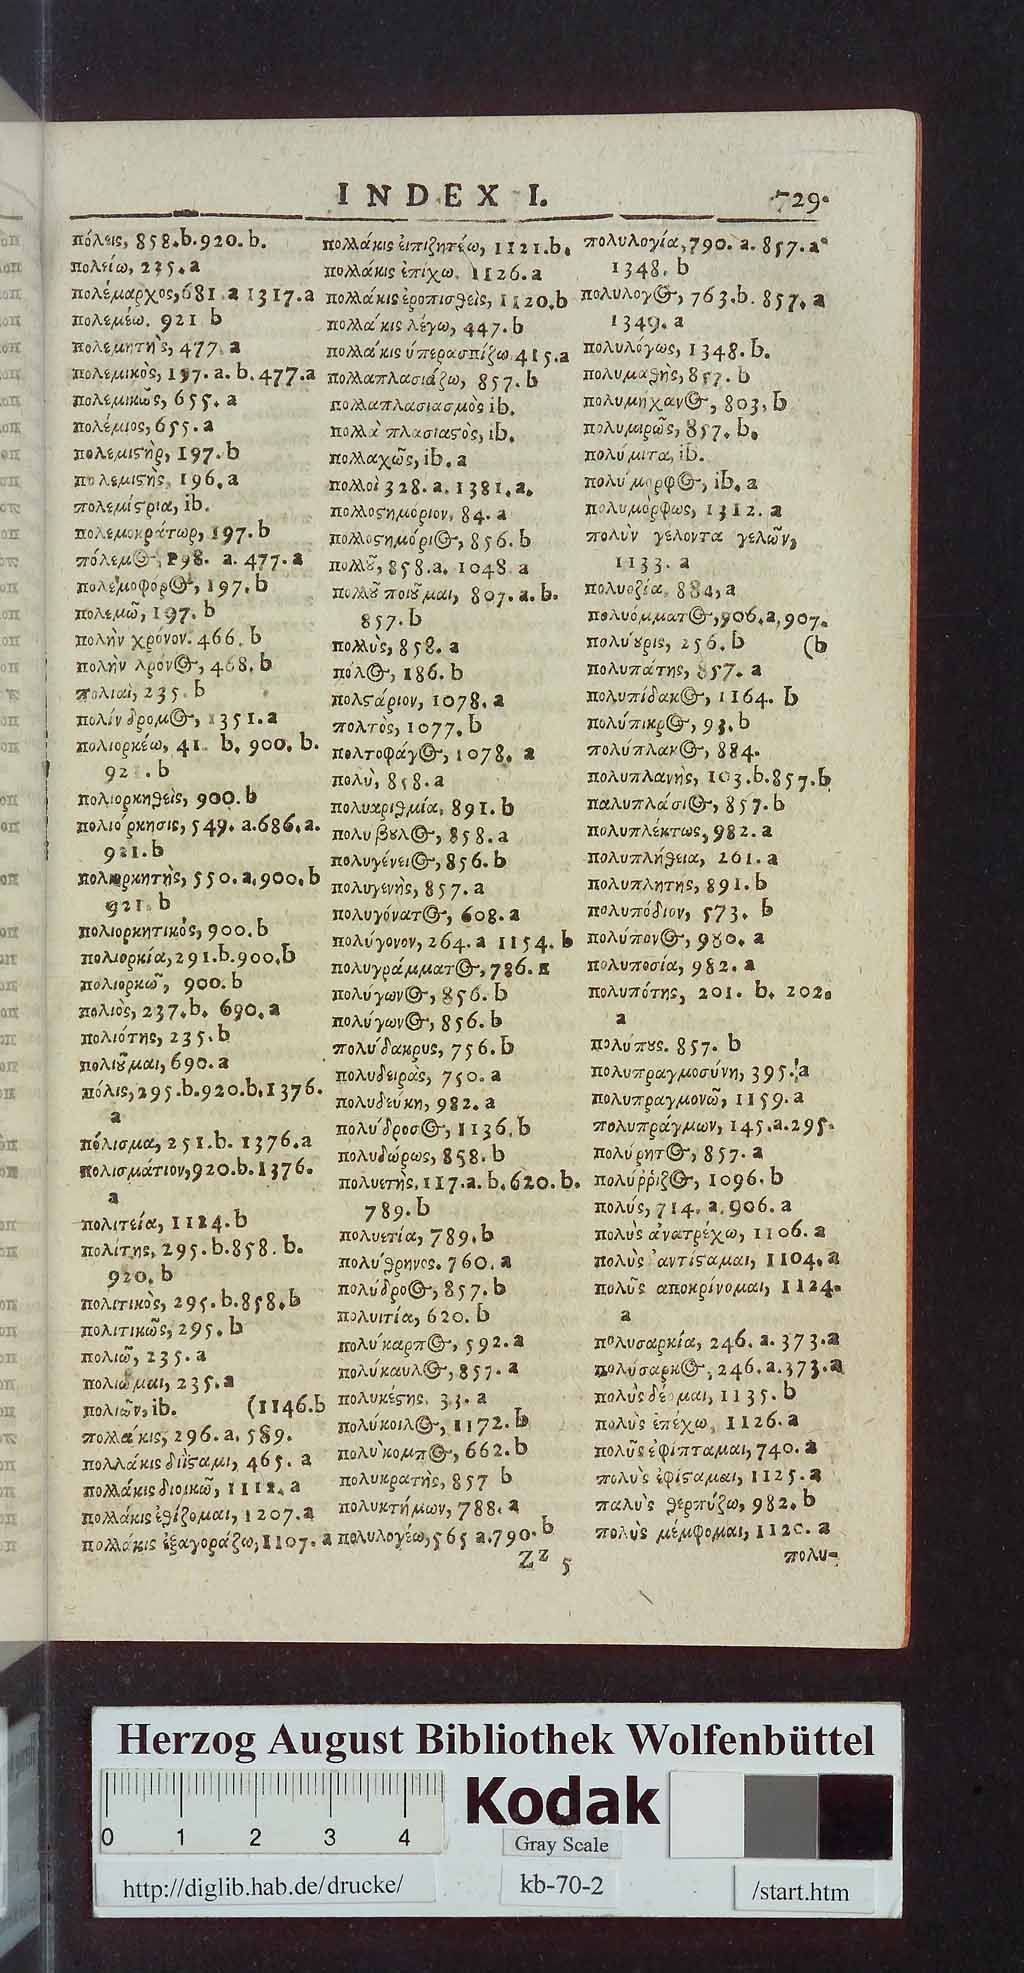 INDEX I. 729.
πόλεις, 858.b.920.b.
πολείω, 235.a
πολέμαρχος, 681.a 1317.a
πολεμέω. 921 b
πολεμητὴς, 477.a
πολεμικὸς, 197.a.b.477.a
πολεμικῶς, 655.a
πολέμιος, 655.a
πολεμιϛὴρ, 197.b
πολεμιϛὴς, 196.a
πολεμίϛρια, ib.
πολεμοκράτωρ, 197.b
πόλεμος, 198. a. 477.a
πολεμοφόρος, 197.b
πολεμῶ, 197.b
πολὴν χρόνον. 466. b
πολὴν λρόνος, 468.b
πολιαὶ, 235.b
πολίνδρομος, 1351.a
πολιορκέω, 41. b. 900.b.
b
πολιορκηθεὶς, 900.b
πολιόρκησις, 549. a.686.a.
921.b
πολιορκητὴς, 550.a.900.b
921.b
πολιορκητικὸς, 900.b
πολιορκία, 291.b.900.b
πολιορκῶ, 900.b
πολιὸς, 237.b. 690.a
πολιότης, 235.b
πολιȣ͂μαι, 690.a
πόλις, 295.b.920.b.1376.
a
πόλισμα, 251.b. 1376.a
πολισμάτιον, 920.b.1376.
a
πολιτεία, 1124.b
πολίτης, 295.b.858.b.
920.b
πολιτικὸς, 295.b.858.b
πολιτικῶς, 295.b
πολιῶ, 235.a
πολιῶμαι, 235.a
πολιῶν, ib. (1146.b
πολλάκις, 296.a. 589.
πολλάκις διΐϛαμι, 465. a
πολλάκις διοικῶ, 1112.a
πολλάκις ἐθίζομαι, 1207.a
πολλάκις ἐξαγοράζω, 1107.a
πολλάκις ἐπιζητέω, 1121.b.
πολλάκις ἐπίχω. 1126.a
πολλάκις ἐροπισθεὶς, 1120.b
πολλάκις λέγω, 447.b
πολλάκις ὑπερασπίζω 415.a
πολλαπλασιάζω, 857.b
πολλαπλασιασμὸς ib.
πολλαπλασιαϛὸς, ib.
πολλαχῶς, ib.a
πολλοὶ 328.a. 1381.a.
πολλοϛημόριον, 84.a
πολλοϛημόριος, 856.b
πολλȣ͂, 858.a. 1048 a
πολλȣ͂ ποιȣ͂μαι, 807.a.b.
857.b
πολλὺς, 858.a
πόλος, 186.b
πολϛάριον, 1078.a
πολτὸς, 1077.b
πολτοφάγος, 1078. a
πολὺ, 858.a
πολυαριθμία, 891.b
πολύβȣλος, 858.a
πολυγένειος, 856.b
πολυγενὴς, 857.a
πολυγόνατος, 608.a
πολύγονον, 264.a 1154.b
πολυγράμματος, 786.a
πολύγωνος, 856.b
πολύγωνος, 856.b
πολύδακρυς, 756.b
πολυδειρὰς, 750.a
πολυδεύκη, 982.a
πολύδροσος, 1136.b
πολυδώρως, 858.b
πολυετὴς, 117.a.b.620.b.
789.b
πολυετία, 789.b
πολύθρηνος. 760.a
πολύδρος, 857.b
πολυιτία, 620.b
πολύκαρπος, 592.a
πολύκαυλος, 857.a
πολυκέϛης, 33.a
πολύκοιλος, 1172.b
πολύκομπος, 662.b
πολυκρατὴς, 857 b
πολυκτήμων, 788.a
πολυλογέω, 565 a.790.b
πολυλογία, 790.a.857.a
1348.b
πολυλόγος, 763.b. 857.a
1349.a
πολυλόγως, 1348.b.
πολυμαθὴς, 857.b
πολυμήχανος, 803.b
πολυμιρῶς, 857.b.
πολύμιτα, ib.
πολύμορφος, ib.a
πολυμόρφως, 1312.a
πολὺν γέλοντα γελῶν,
1133.a
πολυοζία, 884.a
πολυόμματος, 906.a.907.
πολύȣρις, 256.b (b
πολυπάτης, 857.a
πολυπίδακος, 1164.b
πολύπικρος, 93.b
πολύπλακος, 884.
πολυπλανὴς, 103.b.857.b
παλυπλάσιος, 857.b
πολυπλέκτως, 982.a
πολυπλήθεια, 261.a
πολυπλητης, 891.b
πολυπόδιον, 573. b
πολύπονος, 980.a
πολυποσία, 982.a
πολυπότης, 201.b. 202.
a
πολύπȣς. 857.b
πολυπραγμοσύνη, 395.a
πολυπραγμονῶ, 1159.a
πολυπράγμων, 145.a.295.
πολύρητος, 857.a
πολύῤῥιζος, 1096.b
πολύς, 714.a.906.a
πολὺς ἀνατρέχω, 1106.a
πολὺς ἀντίϛαμαι, 1104.a
πολῦς αποκρίνομαι, 1124.
a
πολυσαρκία, 246.a.373.a
πολύσαρκος, 246.a.373.a
πολὺς δέομαι, 1135.b
πολὺς ἐπέχω, 1126.a
πολῦς ἐφίπταμαι, 740.a
πολὺς ἐφίϛαμαι, 1125.a
παλὺς θερπύζω, 982.b
πολὺς μέμφομαι, 1120.a
Zz 5 πολυ-
Herzog August Bibliothek Wolfenbüttel
Kodak
0 1 2 3 4
Gray Scale
http://diglib.hab.de/drucke/ kb-70-2 /start.htm